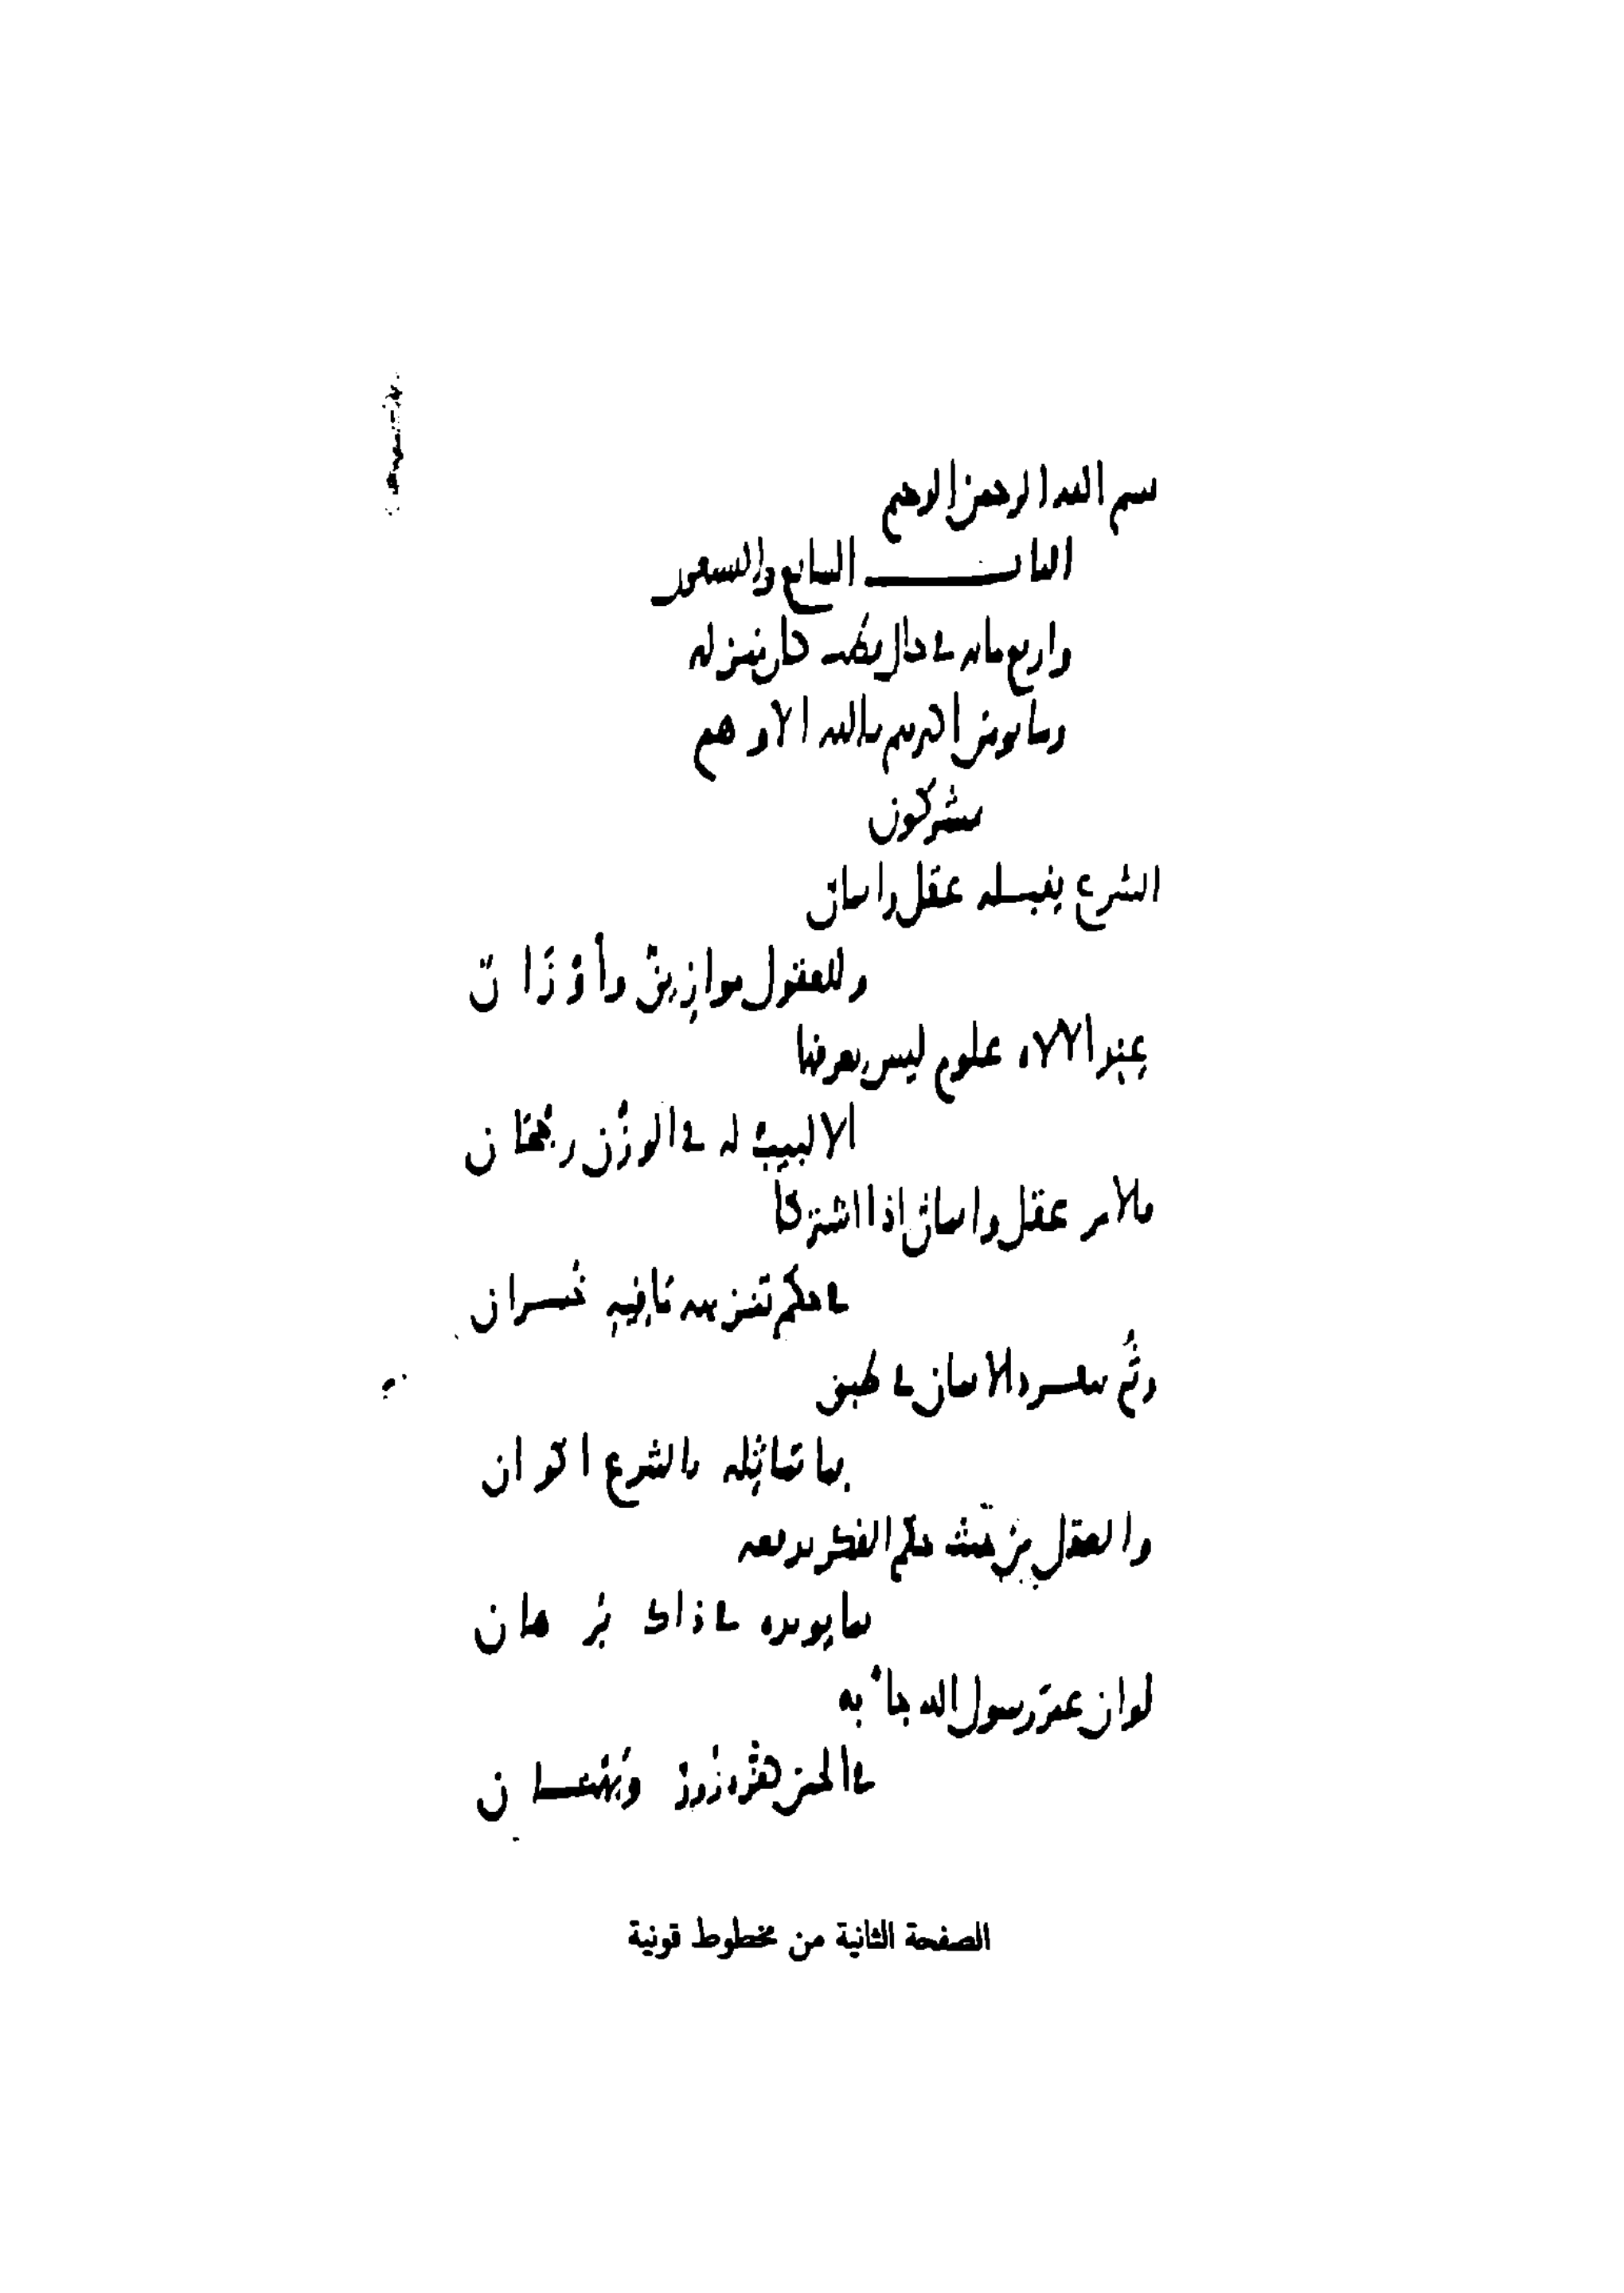 بسم الله الرحمن الرحيم
الباب السابع والتسعون
واربع مائة في حال قطب كان منزله
وما يومن اكثرهم بالله الا وهم
مشركون
الشرع يقبله عقل وايمان
وللعقول موازين وأوزان
عند الاله علوم ليس يعرفها
الا لبيب له في الوزن رجحان
فالامر عقل وايمان اذا اشتركا
في حكم تنزيهه ما فيه خسران
وثم ينفرد الايمان في طبق
بما تماثله بالشرع اكوان
والعقل من حيث حكم الفكر يدفعه
بما يويده في ذاك برهان
لو ان غير رسول الله جاء به
في الحين زور وبهتان
الصفحة الثانية من مخطوط قونية